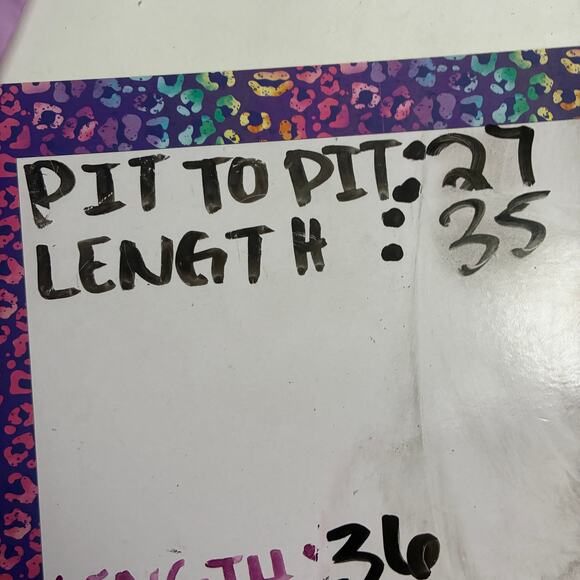 PIT TO PIT: 27
LENGTH : 35
LENGTH: 36